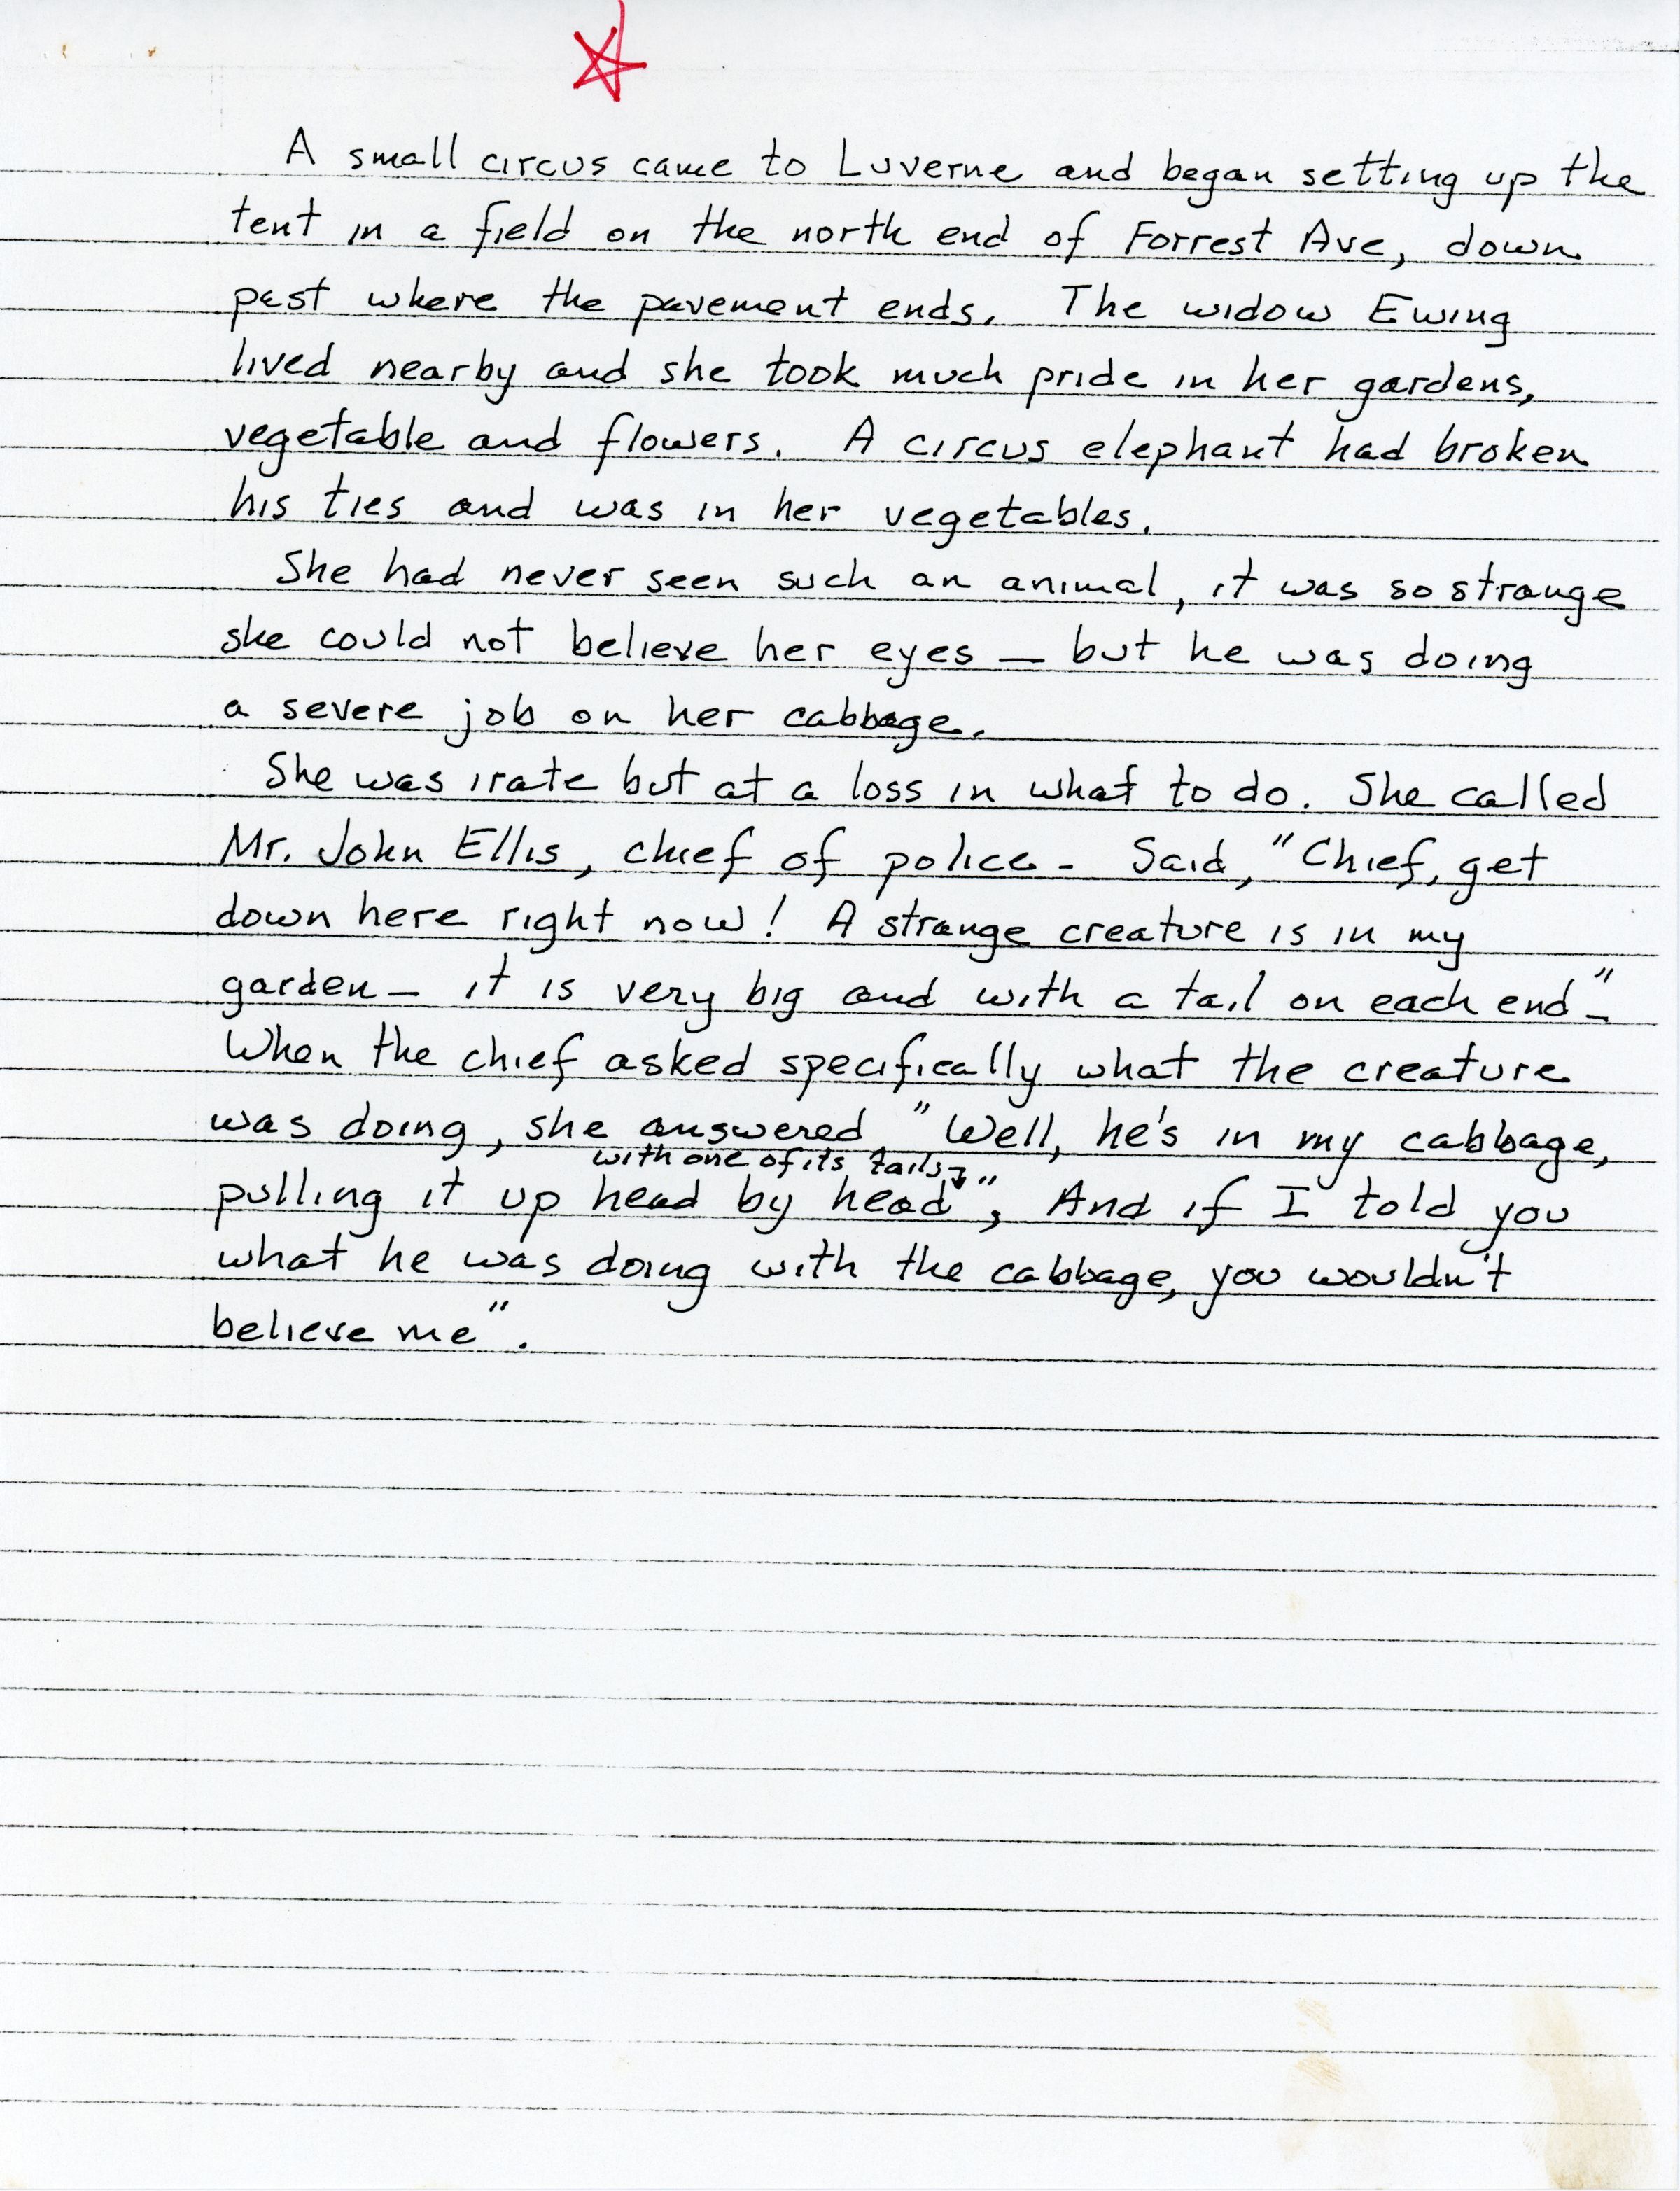 A small circus came to Luverne and began setting up the
tent in a field on the north end of Forrest Ave, down
past where the pavement ends. The widow Ewing
lived nearby and she took much pride in her gardens,
vegetable and flowers. A circus elephant had broken
his ties and was in her vegetables.
She had never seen such an animal, it was so strange
she could not believe her eyes — but he was doing
a severe job on her cabbage.
She was irate but at a loss in what to do. She called
Mr. John Ellis, chief of police - Said, "Chief, get
down here right now! A strange creature is in my
garden - it is very big and with a tail on each end" -
When the chief asked specifically what the creature
was doing, she answered, "Well, he's in my cabbage,
with one of its tails
pulling it up head by head", And if I told you
what he was doing with the cabbage, you wouldn't
believe me".